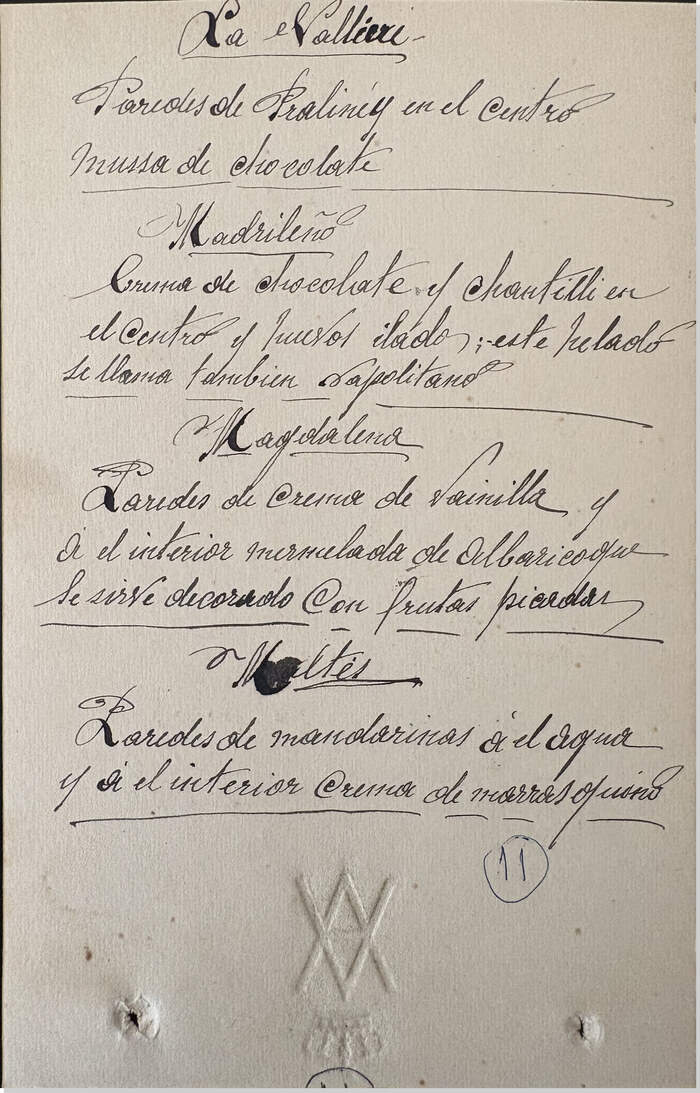 La Vallieri
Paredes de Praliney en el centro
mussa de chocolate
Madrileño
Crema de chocolate y chantilli en
el centro y huevos ilado; este helado
se llama tambien napolitano
Magdalena
Paredes de crema de Vainilla y
á el interior mermelada de albaricoque
Se sirve decorado con frutas picadas
Maltés
Paredes de mandarinas á el agua
y á el interior Crema de marrasquino
11